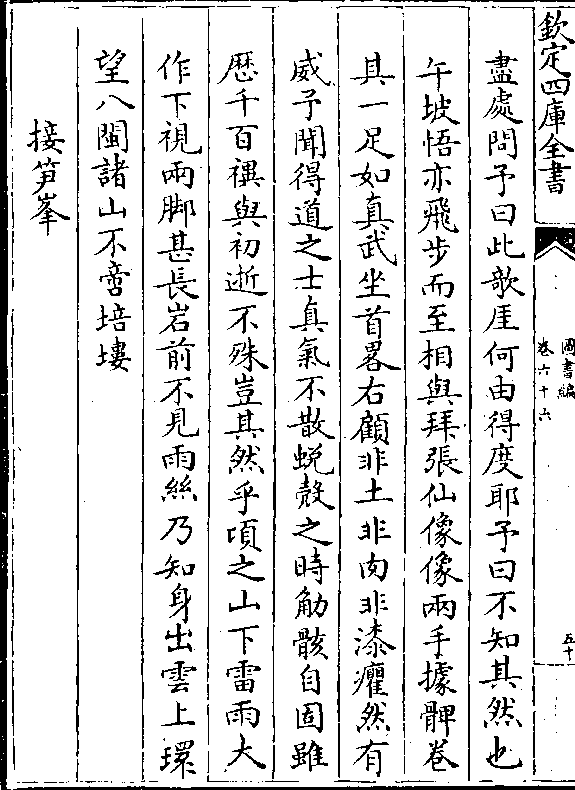 欽定四庫全書
圖書編
卷六十六
五十
盡處問予曰此欹厓何由得度耶予曰不知其然也
午坡悟亦飛步而至相與拜張仙像像兩手據髀卷
其一足如真武坐首畧右顧非土非肉非漆癯然有
威予聞得道之士真氣不散蛻殼之時觔骸自固雖
歴千百禩與初逝不殊豈其然乎頃之山下雷雨大
作下視兩脚甚長岩前不見雨絲乃知身出雲上環
望八閩諸山不啻培塿
接笋峯